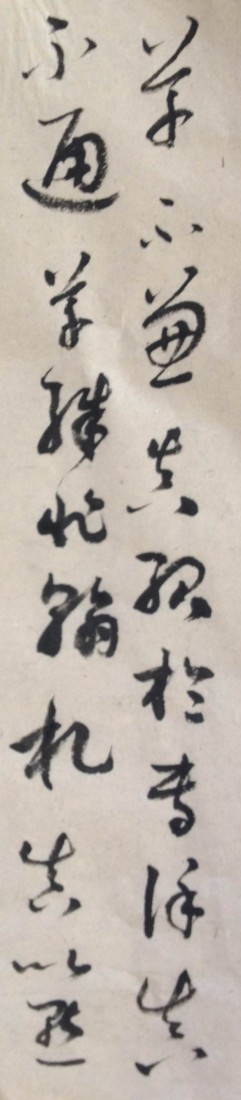 草不兼真殆於專谨真
不通草殊非翰札真以點